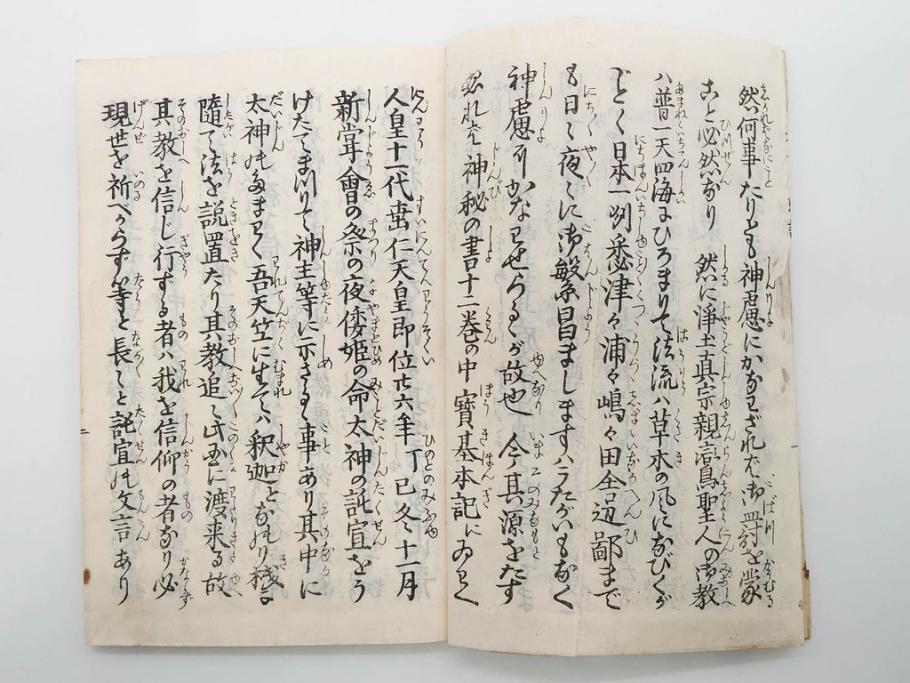 然ハ何事たりとも神慮にかなわざれば御罰を蒙
こと必然なり　然に浄土真宗親鸞聖人の御教
ハ普一天四海にひろまりて法流ハ草木の風になびくが
ごとく日本一州悉津々浦々嶋々田舎辺鄙まで
も日々夜々に御繁昌ましますハうたがいもなく
神慮にかなわせらるゝが故也　今其源をたず
ぬれば神秘の書十二巻の中　寶基本記にいわく
人皇十一代垂仁天皇即位廿六年丁巳冬十一月
新嘗會の祭の夜倭姫の命太神の託宣をう
けたてまつりて神主等に示さるゝ事あり其中に
太神のたまわく吾天竺に生てハ釈迦となのり種々
随て法を説置たり其教追々此国に渡来る故
其教を信じ行ずる者ハ我を信仰の者なり必
現世を祈べからず等と長々と託宣の文言あり